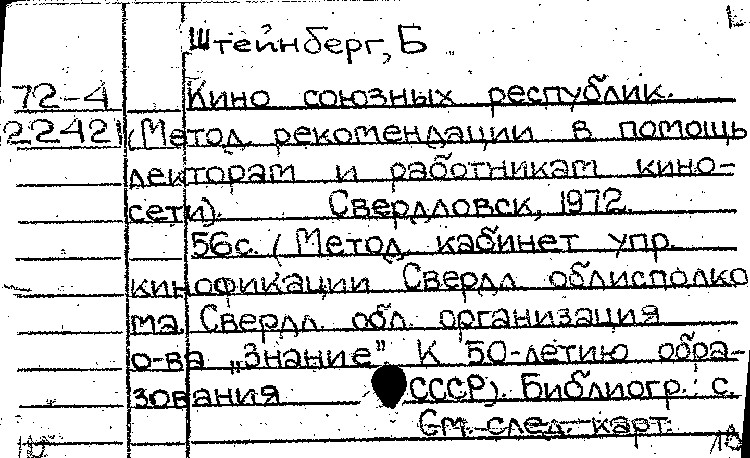 Штейнберг, Б
72-4 Кино союзных республик.
22421 (Метод. рекомендации в помощь
лекторам и работникам кино-
сети). Свердловск, 1972.
56с. (Метод. кабинет упр.
кинофикации Свердл. облисполко
ма. Свердл. обл. организация
о-ва „Знание" К 50-летию обра-
зования СССР). Библиогр.: с.
См. след. карт.